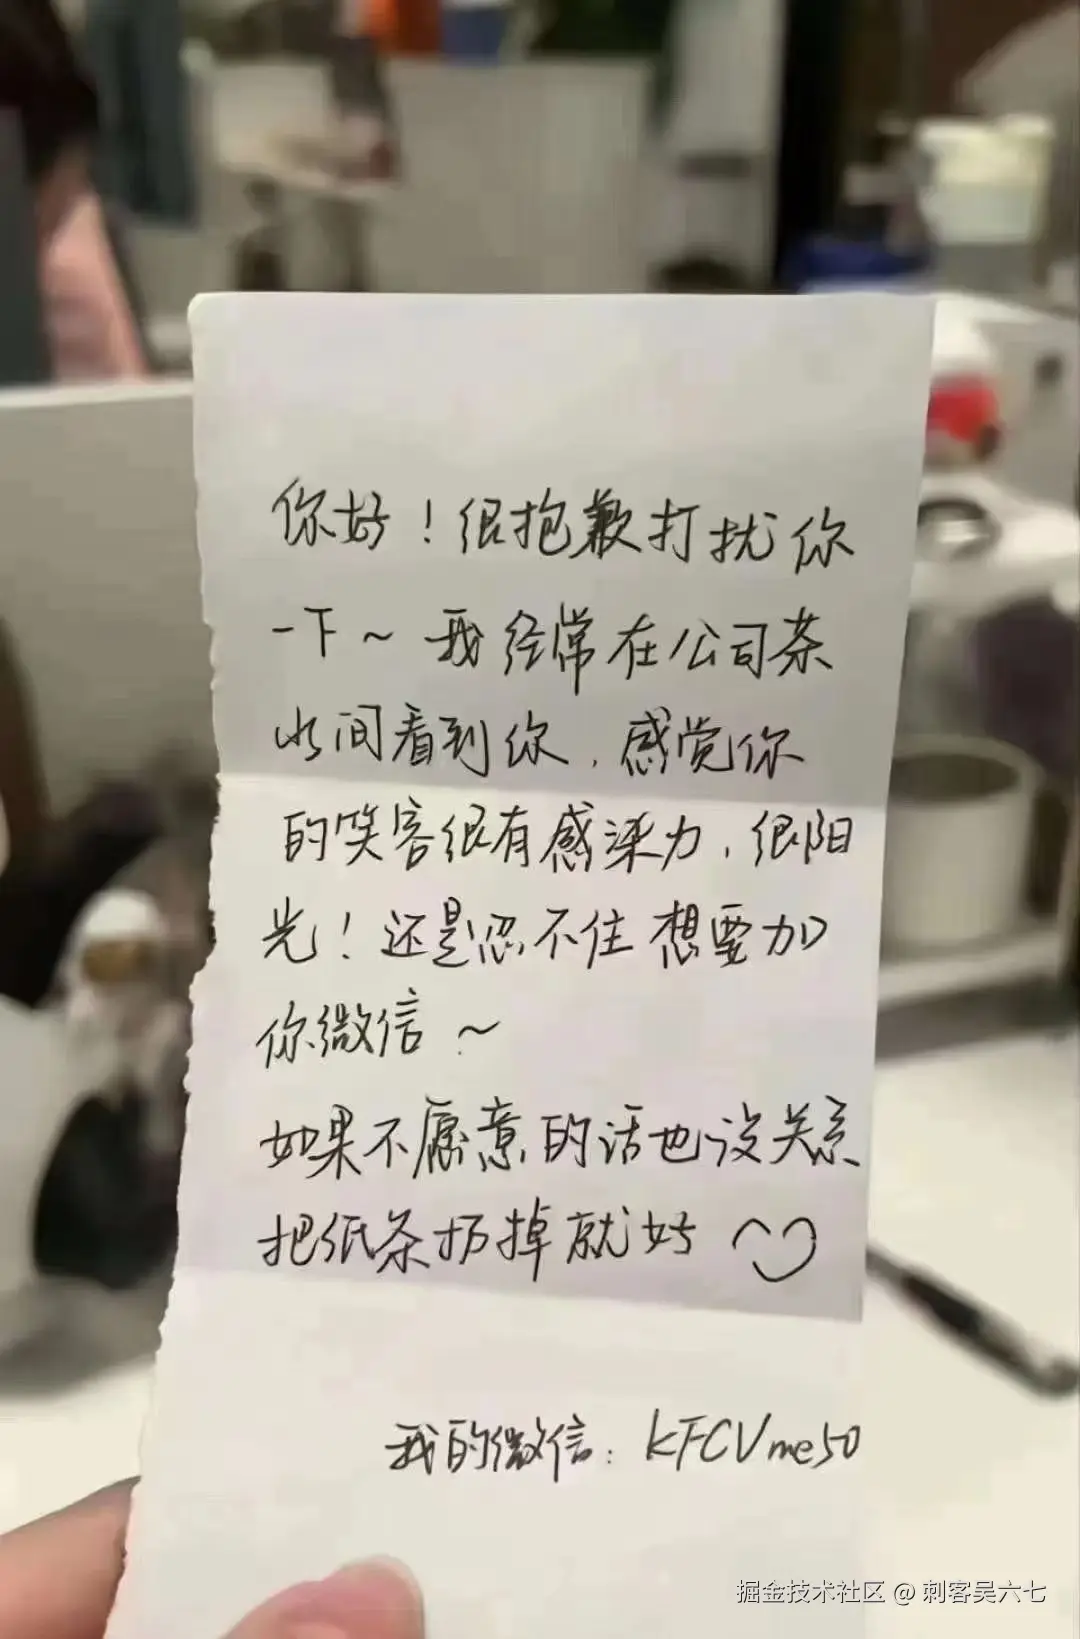 你好！很抱歉打扰你
一下～我经常在公司茶
水间看到你，感觉你
的笑容很有感染力，很阳
光！还是忍不住想要加
你微信～
如果不愿意的话也没关系
把纸条扔掉就好
我的微信：KFCVme50
掘金技术社区 @ 刺客吴六七